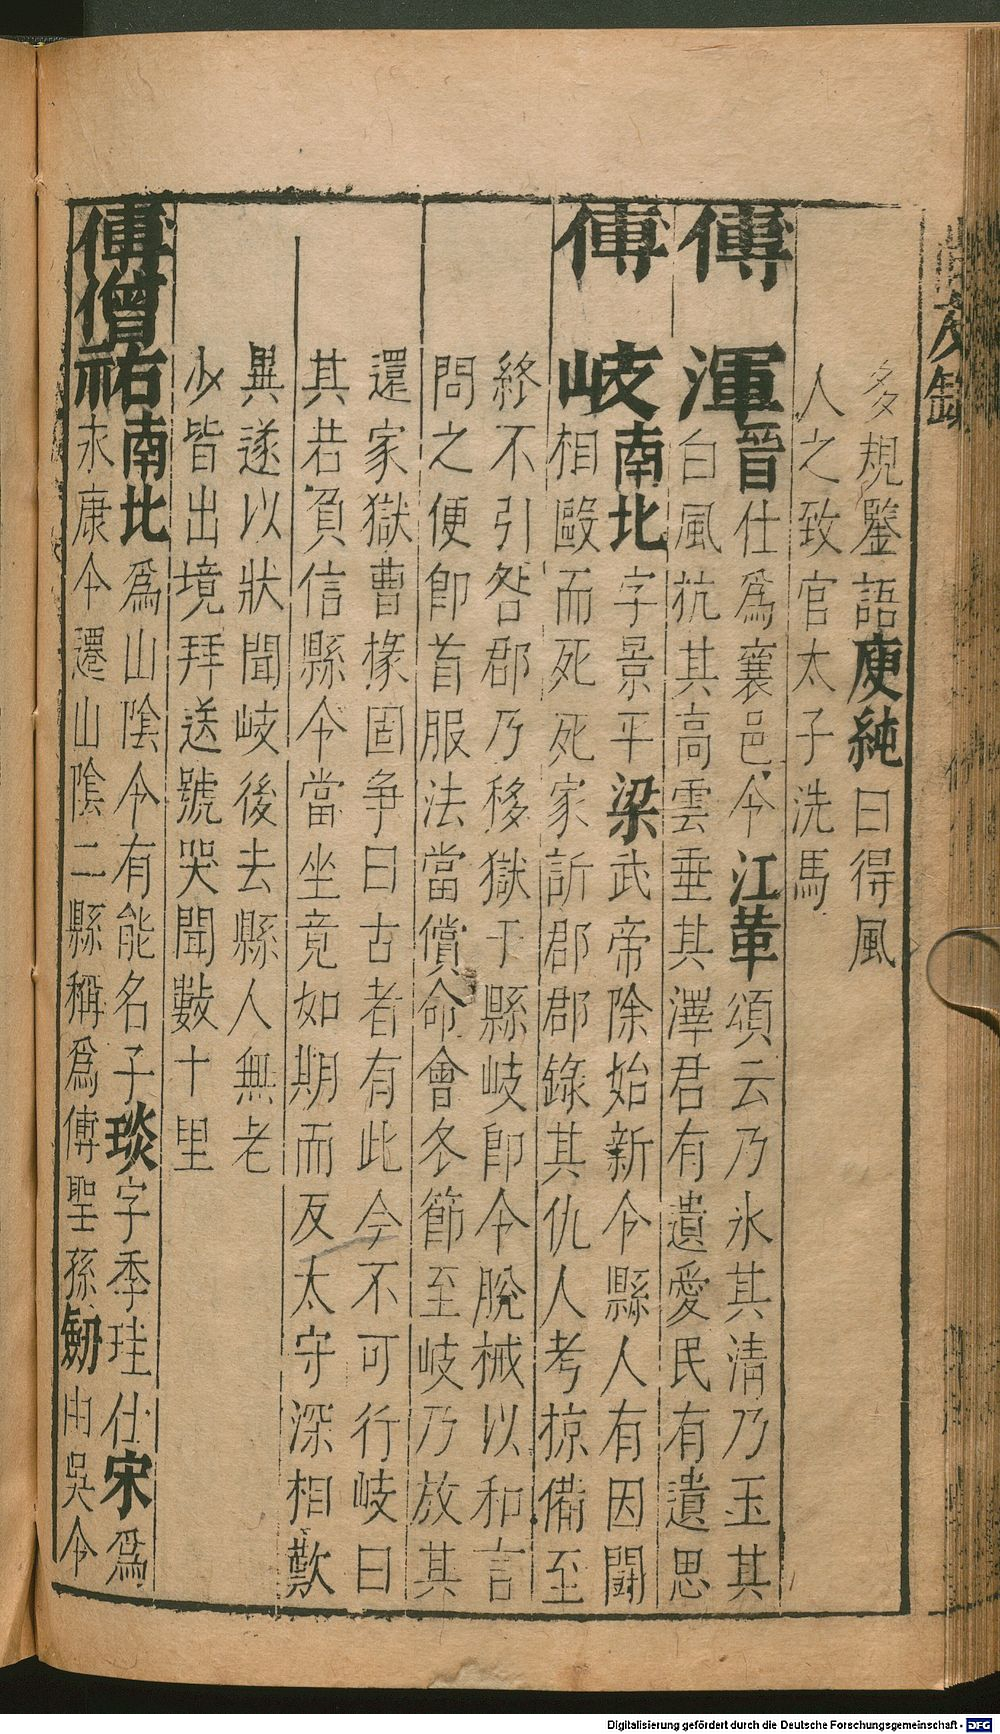 多規鑒語庾純曰得風
人之致官太子洗馬
傅渾晉仕爲襄邑令江革頌云乃氷其清乃玉其
白風抗其高雲垂其澤君有遺愛民有遺思
傅岐南北字景平梁武帝除始新令縣人有因鬪
相毆而死死家訴郡郡錄其仇人考掠備至
終不引咎郡乃移獄于縣岐即令脫械以和言
問之便即首服法當償命會冬節至岐乃放其
還家獄曹掾固争曰古者有此今不可行岐曰
其若負信縣令當坐竟如期而反太守深相歎
異遂以狀聞岐後去縣人無老
少皆出境拜送號哭聞數十里
傅僧祐南北爲山陰令有能名子琰字季珪仕宋爲
永康令遷山陰二縣稱爲傅聖孫劒由吳令
Digitalisierung gefördert durch die Deutsche Forschungsgemeinschaft - DFG